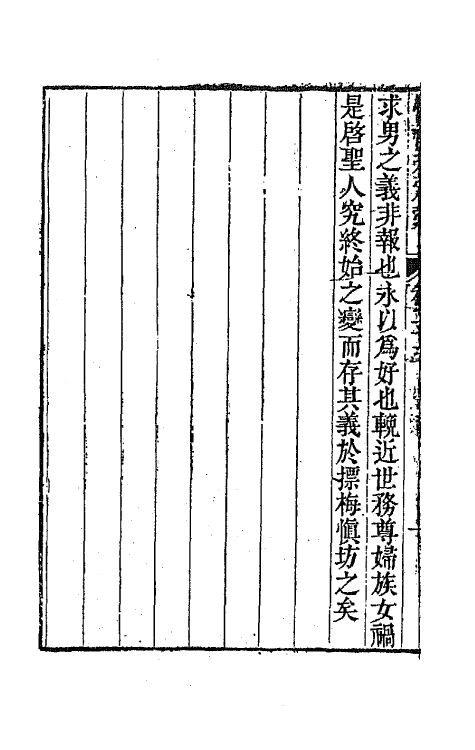 求男之義非報也永以爲好也輓近世務尊婦族女禍
是啓聖人究終始之變而存其義於摽梅愼坊之矣